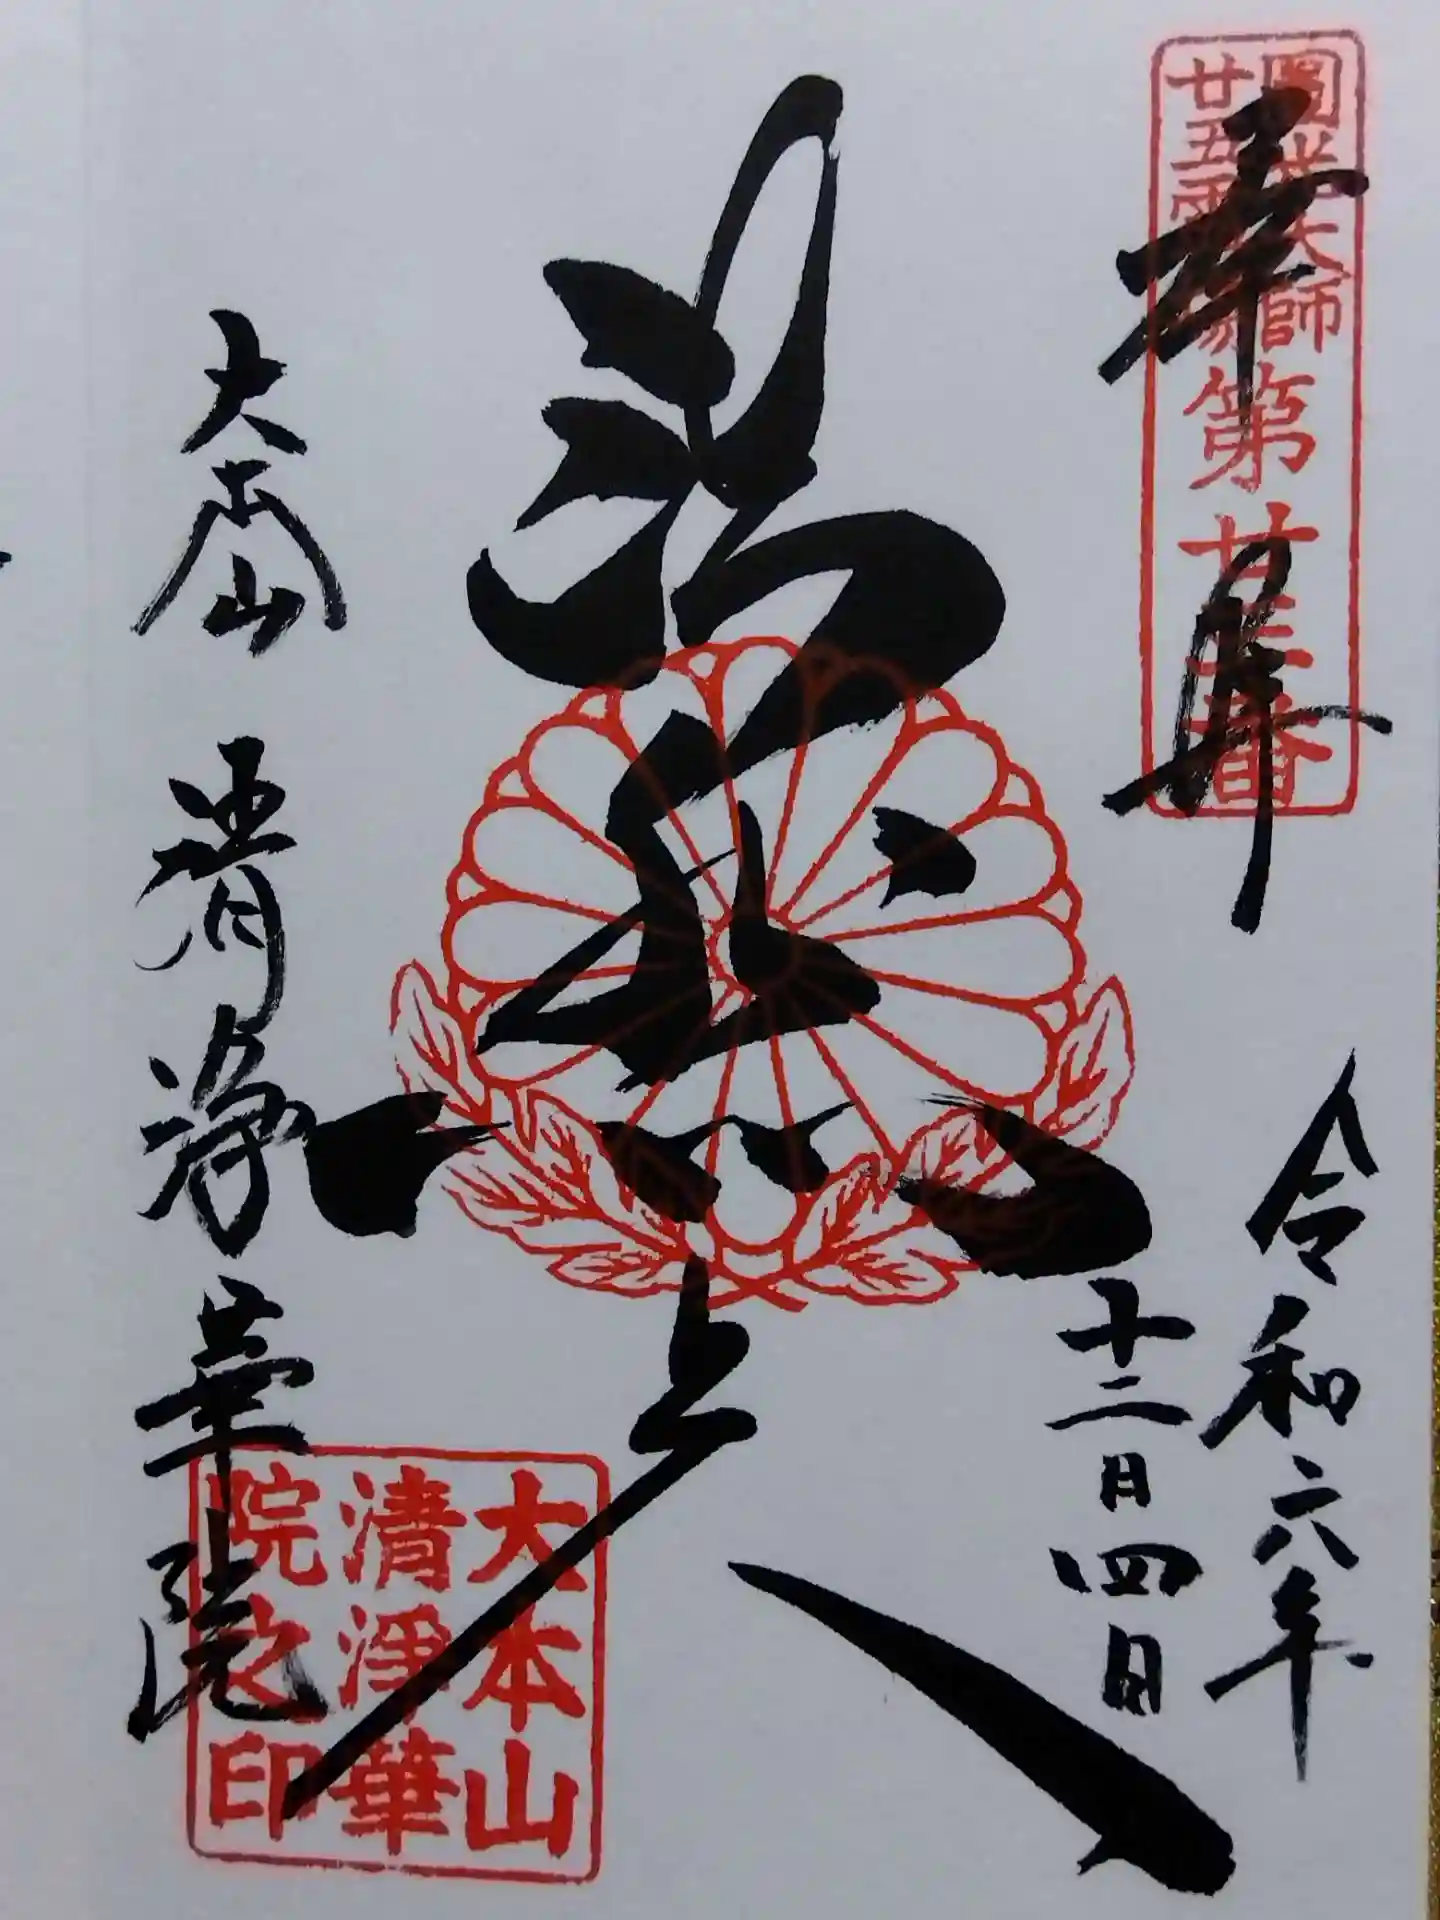 圓光大師
廿五霊場
第廿三番
奉拝
令和六年
十二月四日
法然上人
大本山 清浄華院
大本山
清淨華
院之印